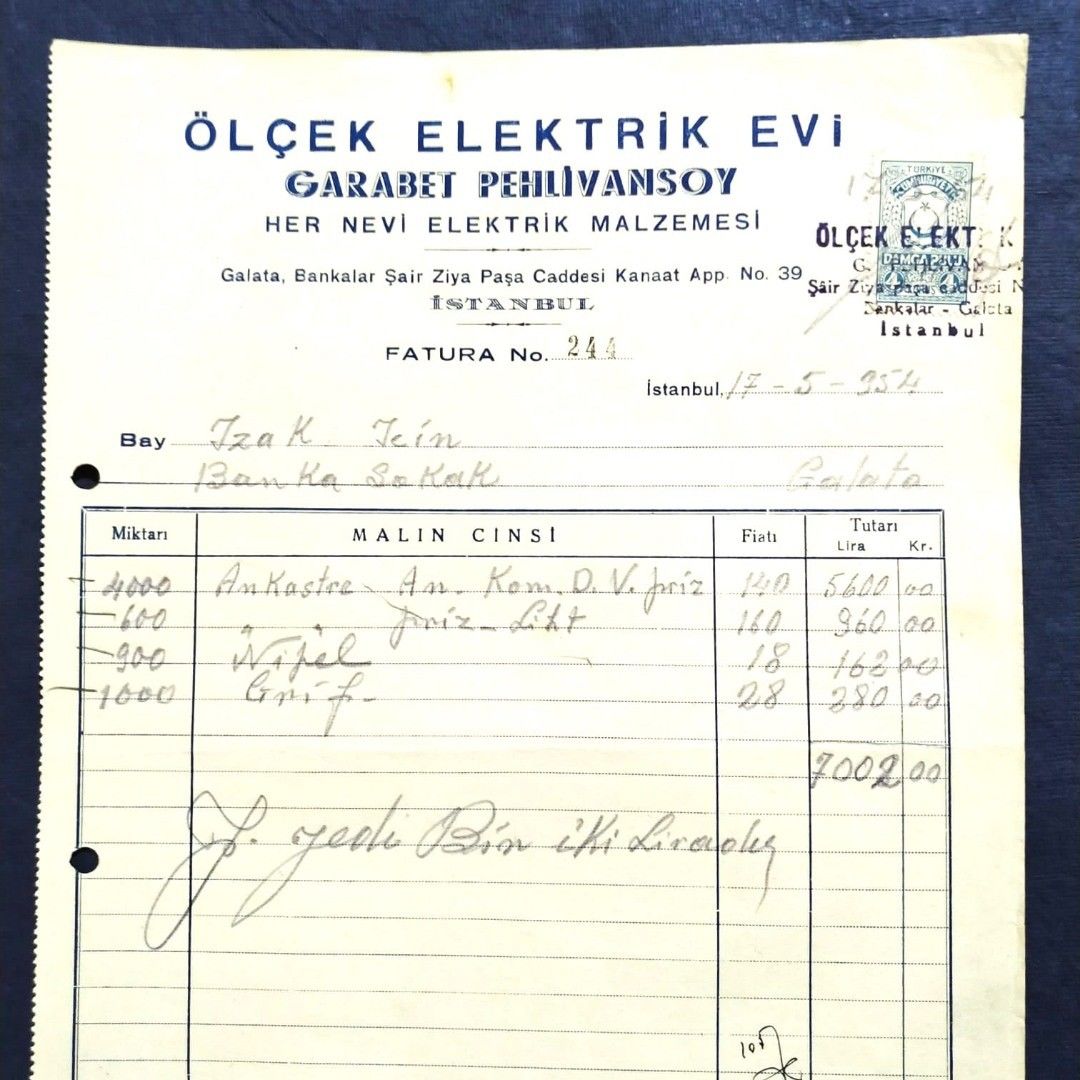 ÖLÇEK ELEKTRİK EVİ
GARABET PEHLİVANSOY
HER NEVİ ELEKTRİK MALZEMESİ
Galata, Bankalar Şair Ziya Paşa Caddesi Kanaat App. No. 39
İSTANBUL
TÜRKİYE
CUMHURİYETİ
DAMGA PULU
ÖLÇEK ELEKT K
G. PEHLİVAN
Şâir Ziya paşa caddesi N
Bankalar - Galata
İstanbul
FATURA No. 244
İstanbul, 17-5-954
Bay Izak
Banka Sokak Galata
Miktarı MALIN CİNSİ Fiatı Tutarı
Lira Kr.
4000 Ankastre An. Kom. D. V. priz 140 5600 00
600 priz - 160 960 00
900 Nipel 18 162 00
1000 Grif- 28 280 00
7002 00
Y. yedi Bin iki Liradır